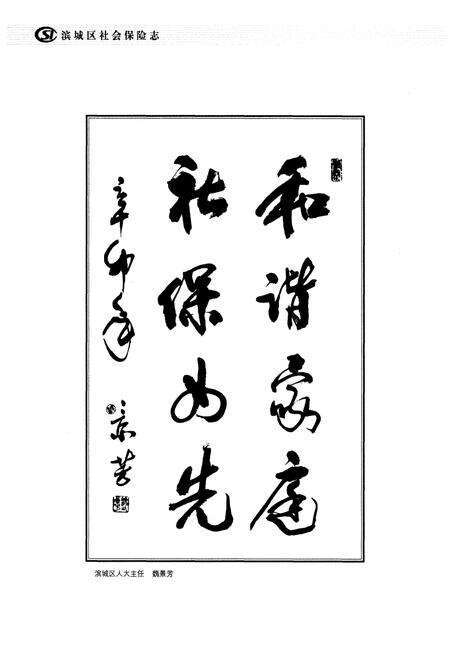 滨城区社会保险志
和谐家庭
社保为先
辛卯年
景芳
滨城区人大主任 魏景芳